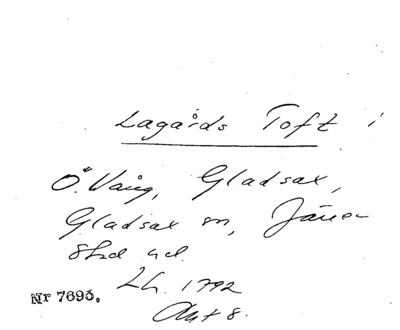 Lagårds Toft i
Ö. Vång, Gladsax,
Gladsax sn, Järre
Skd
Lh. 1792
Akt 8.
Nr 7695.